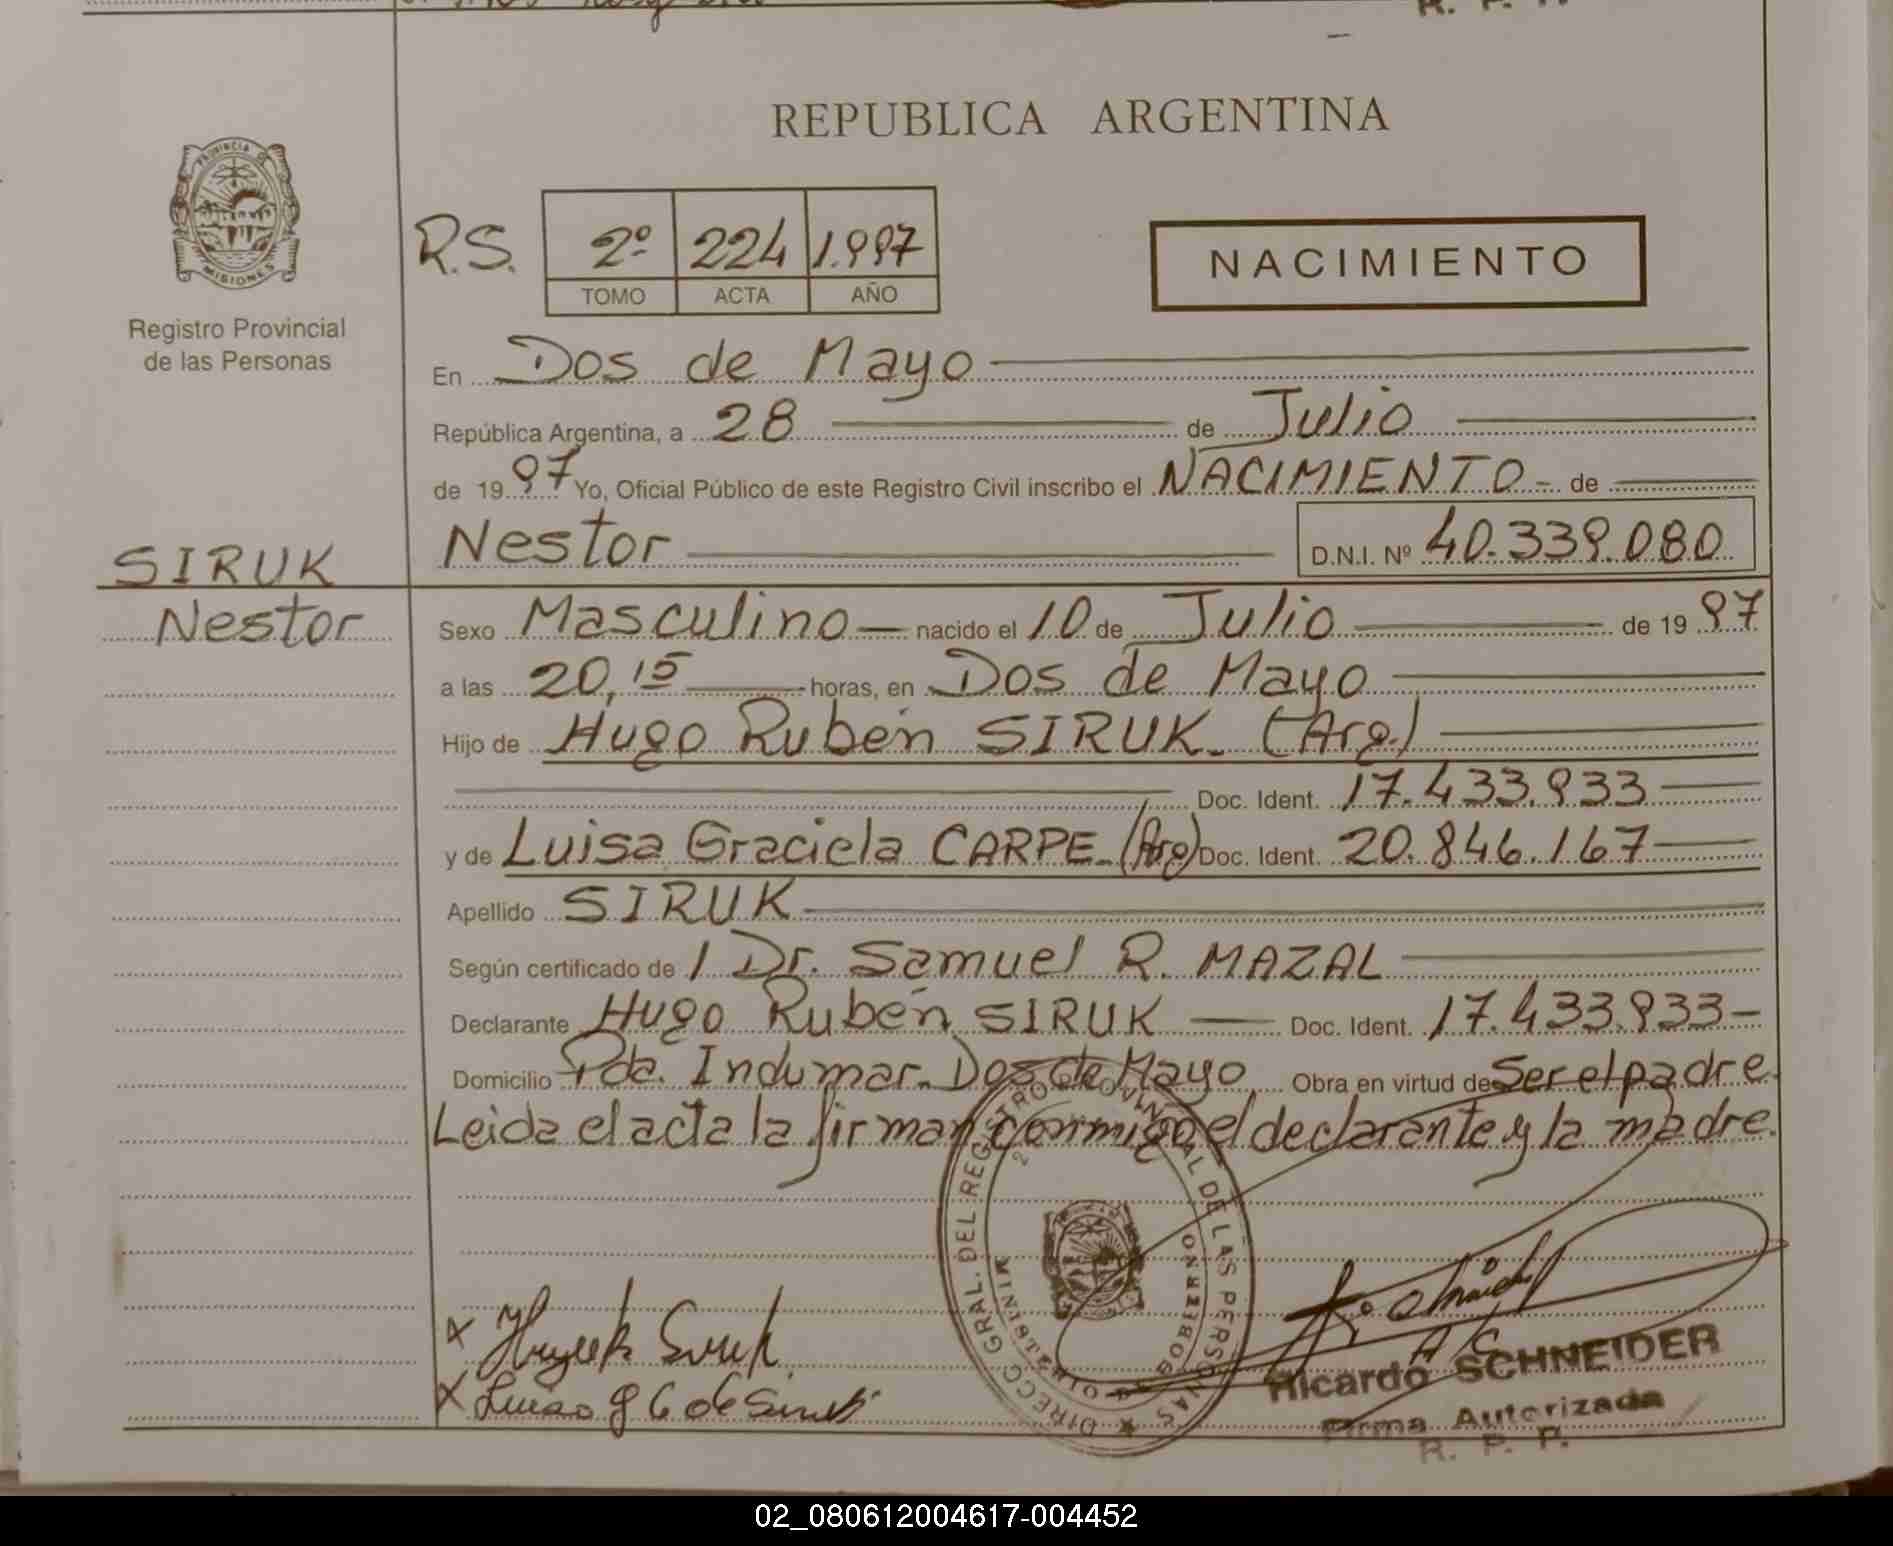 REPUBLICA ARGENTINA
PROVINCIA DE MISIONES
Registro Provincial
de las Personas
R.S. 2º 224 1.997
TOMO ACTA AÑO
NACIMIENTO
En Dos de Mayo
República Argentina, a 28 de Julio
de 19 97 Yo, Oficial Público de este Registro Civil inscribo el NACIMIENTO - de
SIRUK Nestor D.N.I. Nº 40.339.080
Nestor Sexo Masculino nacido el 10 de Julio de 19 97
a las 20,15 horas, en Dos de Mayo
Hijo de Hugo Rubén SIRUK. (Arg.)
Doc. Ident. 17.433.933
y de Luisa Graciela CARPE. (Arg) Doc. Ident. 20.846.167
Apellido SIRUK
Según certificado de 1 Dr. Samuel R. MAZAL
Declarante Hugo Rubén SIRUK Doc. Ident. 17.433.933
Domicilio Pda. Indumar. Dos de Mayo Obra en virtud de Ser el padre.
Leida el acta la firman conmigo el declarante y la madre.
DIRECC GRAL. DEL REGISTRO PROVINCIAL DE LAS PERSONAS
MINISTERIO DE GOBIERNO
Ricardo SCHNEIDER
Firma Autorizada
R. P. P.
02_080612004617-004452